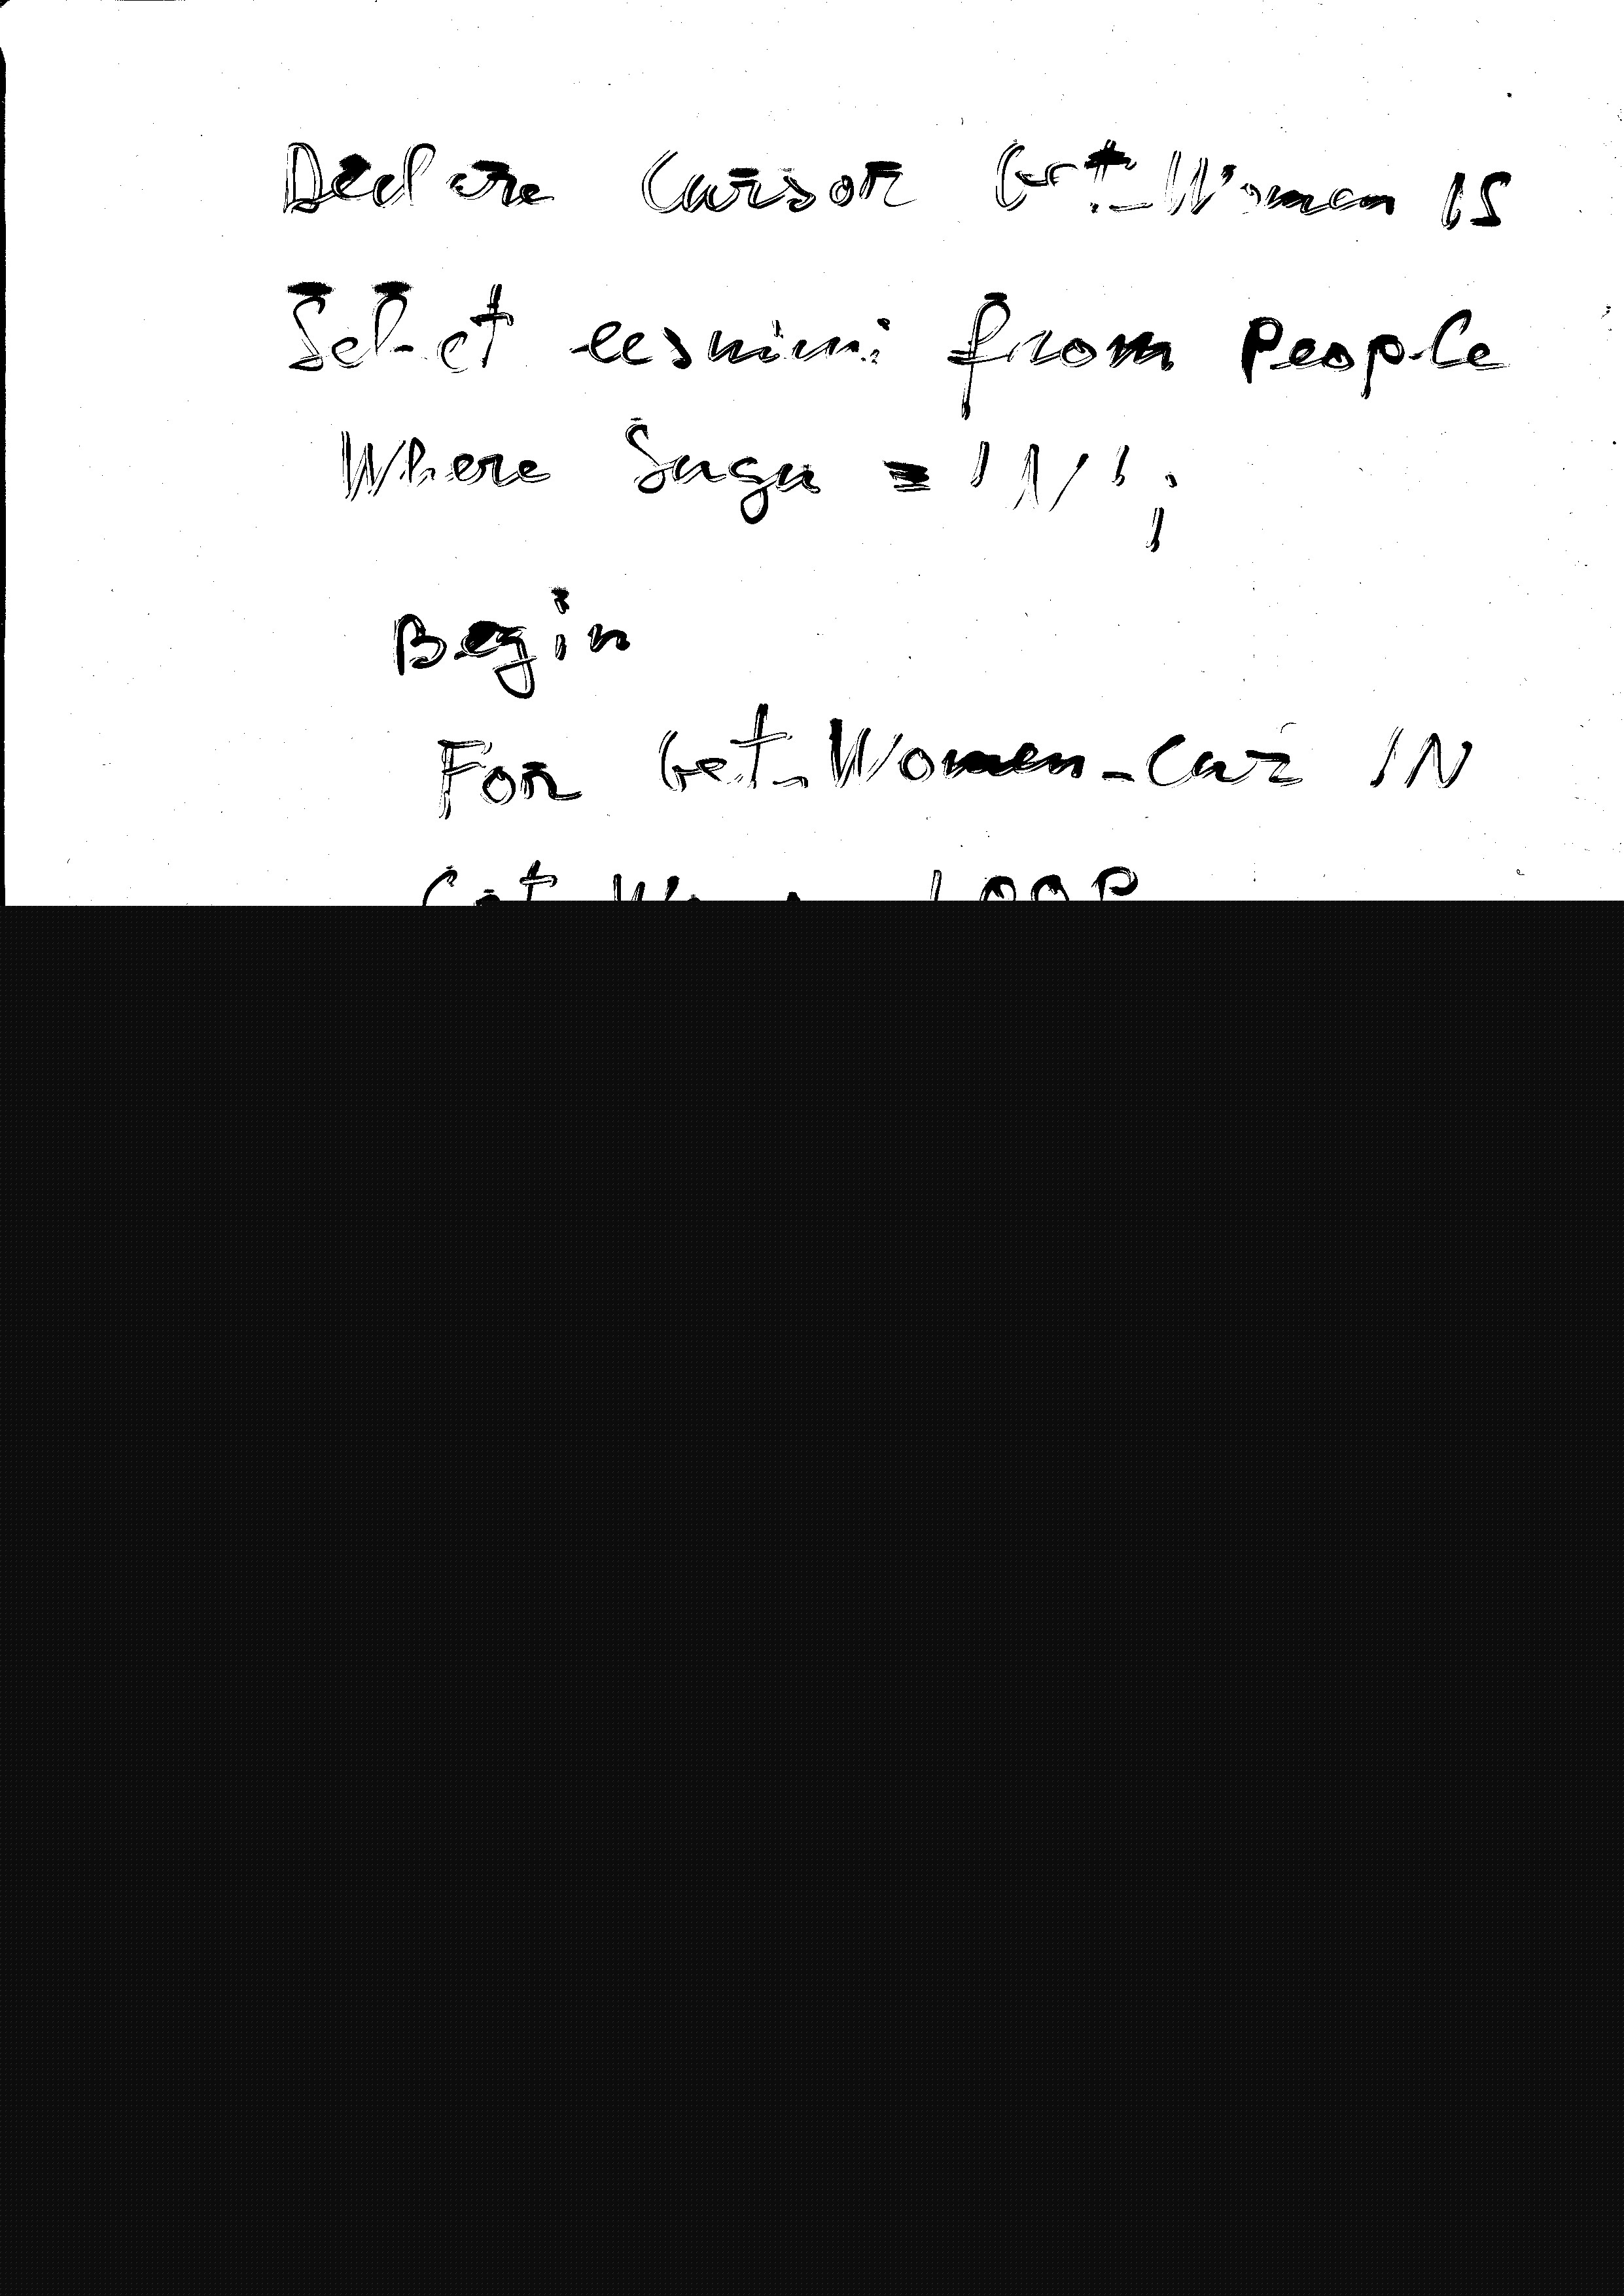 Declare Cursor Get_Women IS
Select eesnimi from People
Where Sugu = 'N';
Begin
For Get_Women_Cur IN
LOOP